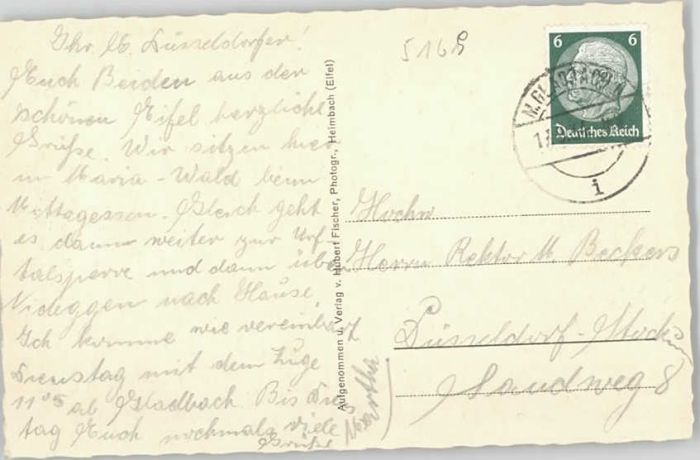 Ihr lb. Düsseldorfer!
Euch Beiden aus der
schönen Eifel herzliche
Grüße. Wir sitzen hier
in Maria-Wald beim
Mittagessen. Gleich geht
es dann weiter zur Urf
talsperre und dann über
Nideggen nach Hause.
Ich komme wie vereinbart
Dienstag mit dem Zuge
11 05 ab Gladbach. Bis Diens
tag Euch nochmals viele
Grüße
Martha
Aufgenommen u. Verlag v. Hubert Fischer, Photogr., Heimbach (Eifel)
5168
6 6
Deutsches Reich
M.GLADBACH
i
Hochw.
Herrn Rektor M. Beckers
Düsseldorf-
Landweg 8